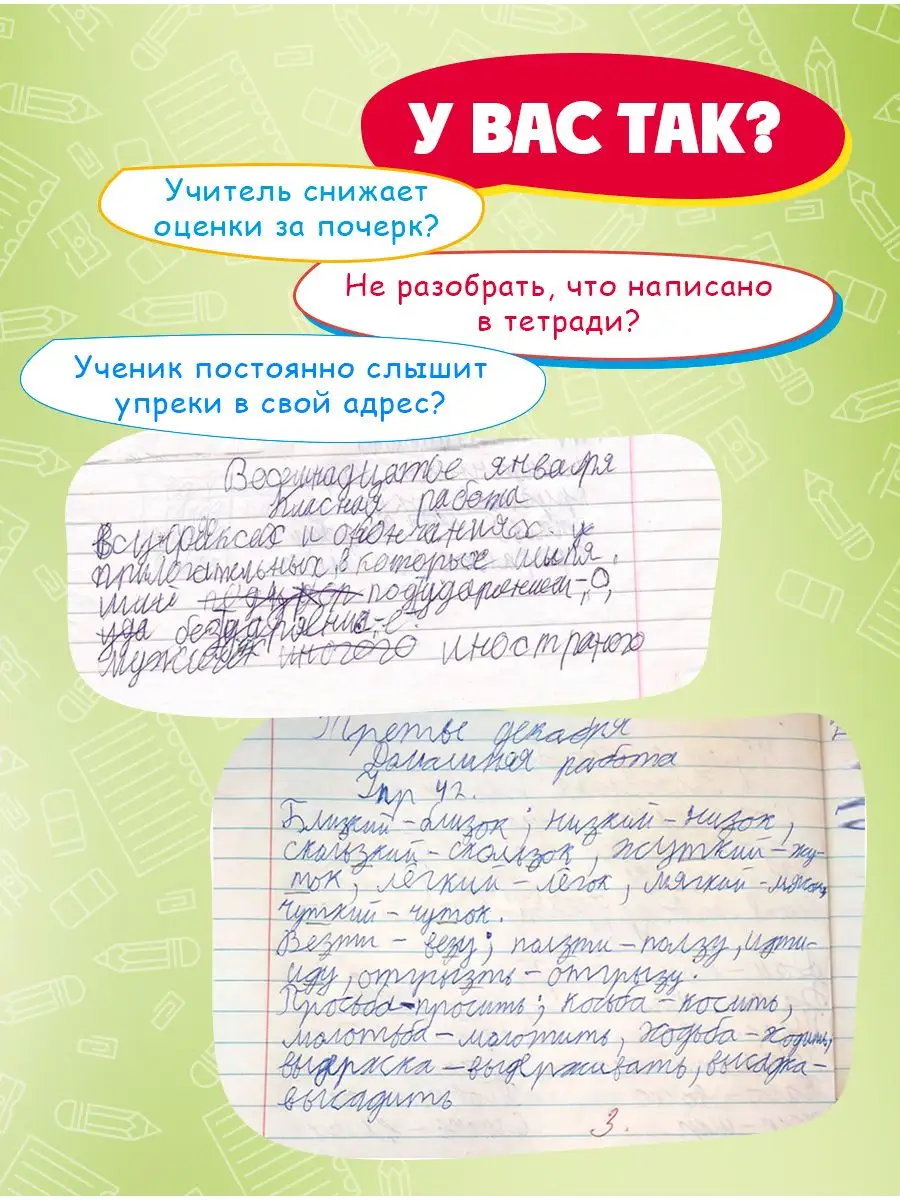 У ВАС ТАК?
Учитель снижает
оценки за почерк?
Не разобрать, что написано
в тетради?
Ученик постоянно слышит
упреки в свой адрес?
января
Класная работа
и окончаниях
прилогательных в которых шыпя
щий подударением-,О,
безударения-,е"
иностраного
Третье декабря
Домашняя работа
Упр 42.
Близкий-близок; низкий-низок,
скользкий-скользок, жуткий-жу-
ток, лёгкий-лёгок, мягкий-
чуткий-чуток.
Везти - везу; ползти-ползу, идти-
иду, отгрызть-отгрызу.
Просьба-просить; косьба-косить,
молотьба-молотить, ходьба-ходить,
-выдерживать, высадка-
высадить
3.